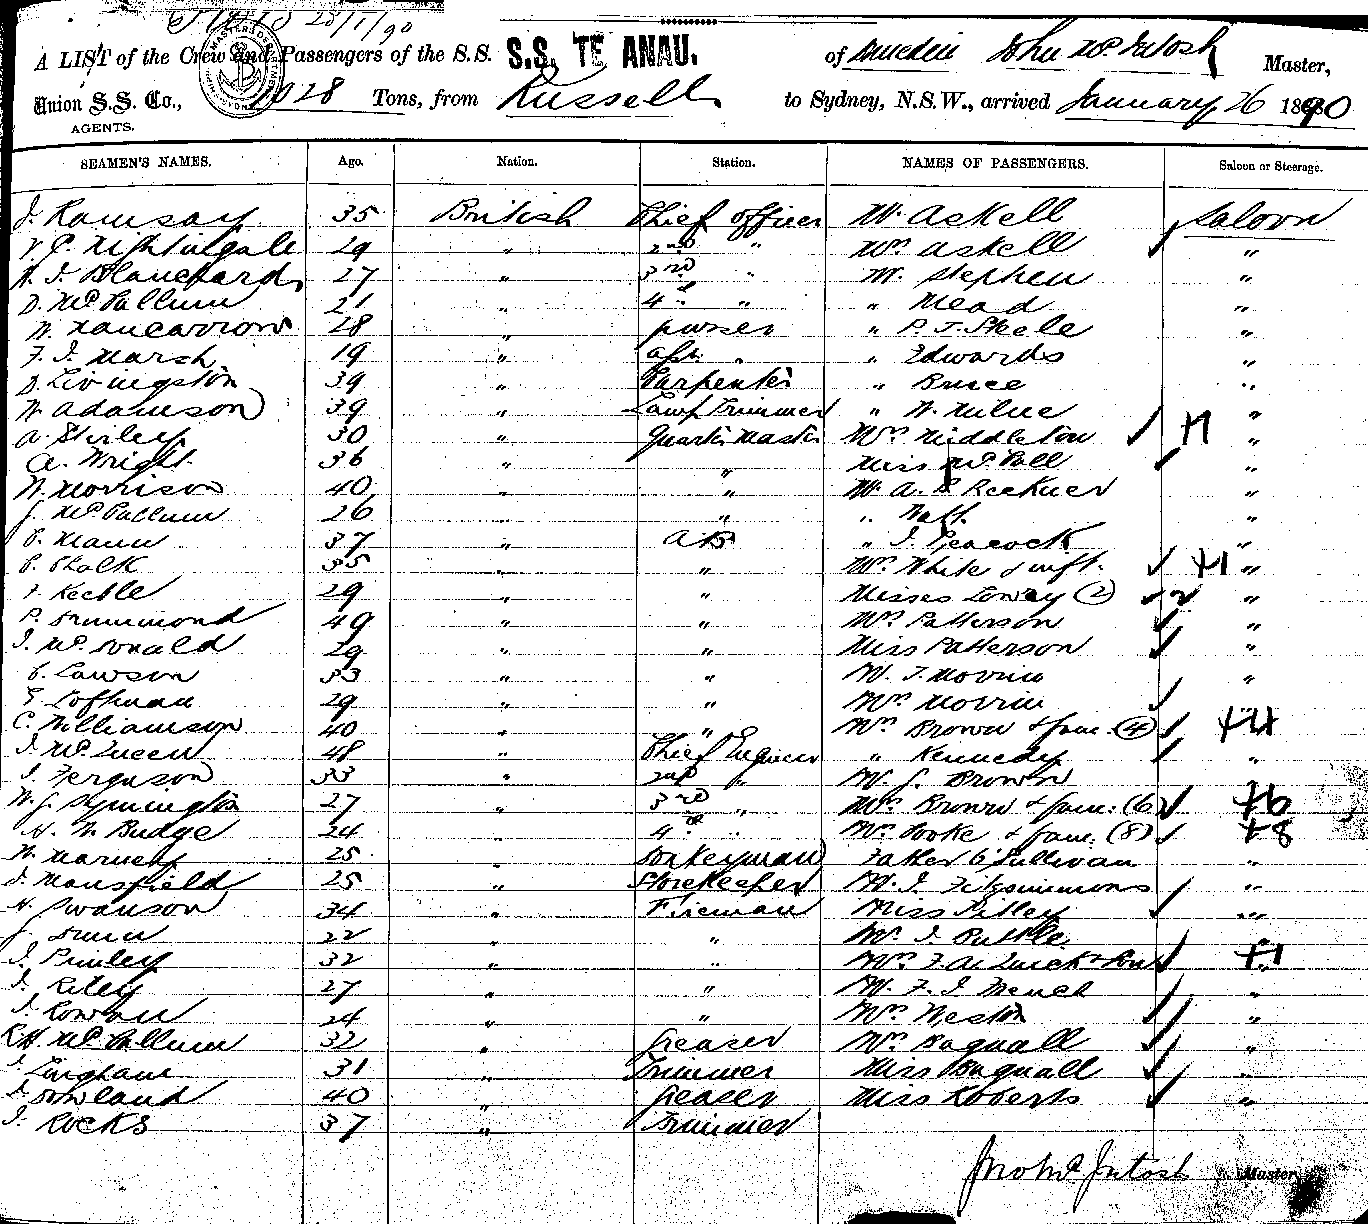 28/1/90
A LIST of the Crew and Passengers of the S.S. S.S. TE ANAU. of Dunedin John McIntosh Master,
Union S.S. Co., 1028 Tons, from Russell to Sydney, N.S.W., arrived January 26 1890
AGENTS.
SEAMEN'S NAMES. Age. Nation. Station. NAMES OF PASSENGERS. Saloon or Steerage.
J. Ramsay 35 British Chief officer Mr. Askell Saloon
Nightingale 29 " 2nd " Mrs Askell "
Blanchard 27 " 3rd " Mr Stephen "
D. McCallum 21 " 4th " " Mead "
W. Nancarrow 28 " purser " P. J. Skeele "
F. J. Marsh 19 " " " Edwards "
D. Livingston 39 " Carpenter " Bruce "
W. Adamson 39 " Lamp Trimmer " W. Milne "
A. Shirley 30 " Quarter Master Mrs Middleton "
A. Wright 36 " " Miss McCall "
W. Morrison 40 " " Mr A. "
J. McCallum 26 " " " "
C. Mann 37 " AB " J. Peacock "
C. Chalk 35 " " Mr White & wife "
Keetle 29 " " Misses (2) "
P. Drummond 49 " " Mrs Patterson "
J. McDonald 29 " " Miss Patterson "
C. Lawson 33 " " Mr J. Morrin "
E. Coffman 29 " " Mrs Morrin "
C. Williamson 40 " " Mrs Brown & fam. (4) +4
J. McQueen 48 " Chief Engineer " Kennedy "
J. Ferguson 33 " 2nd " Mr J. Brown
W. J. Symington 27 " 3rd " Mrs Brown & fam. (6) +6
H. W. Budge 24 " 4th " Mrs Cooke & fam. (8) +8
W. 25 " Donkeyman Father O'Sullivan "
J. Mansfield 25 " Storekeeper Mr J. Fitzsimmons "
H. Swanson 34 " Fireman Miss "
J. Dunn 22 " " Mr J. "
J. 32 " " Mrs F. A. Quick & Son +1
J. Riley 27 " " Mr F. J. "
J. Rowan 24 " " Mrs Weston "
McCallum 32 " Greaser Mrs Bagnall "
Lingham 31 " Trimmer Miss Bagnall "
Rowland 40 " Greaser Miss Roberts "
J. Rocks 37 " Trimmer
Jno McIntosh Master